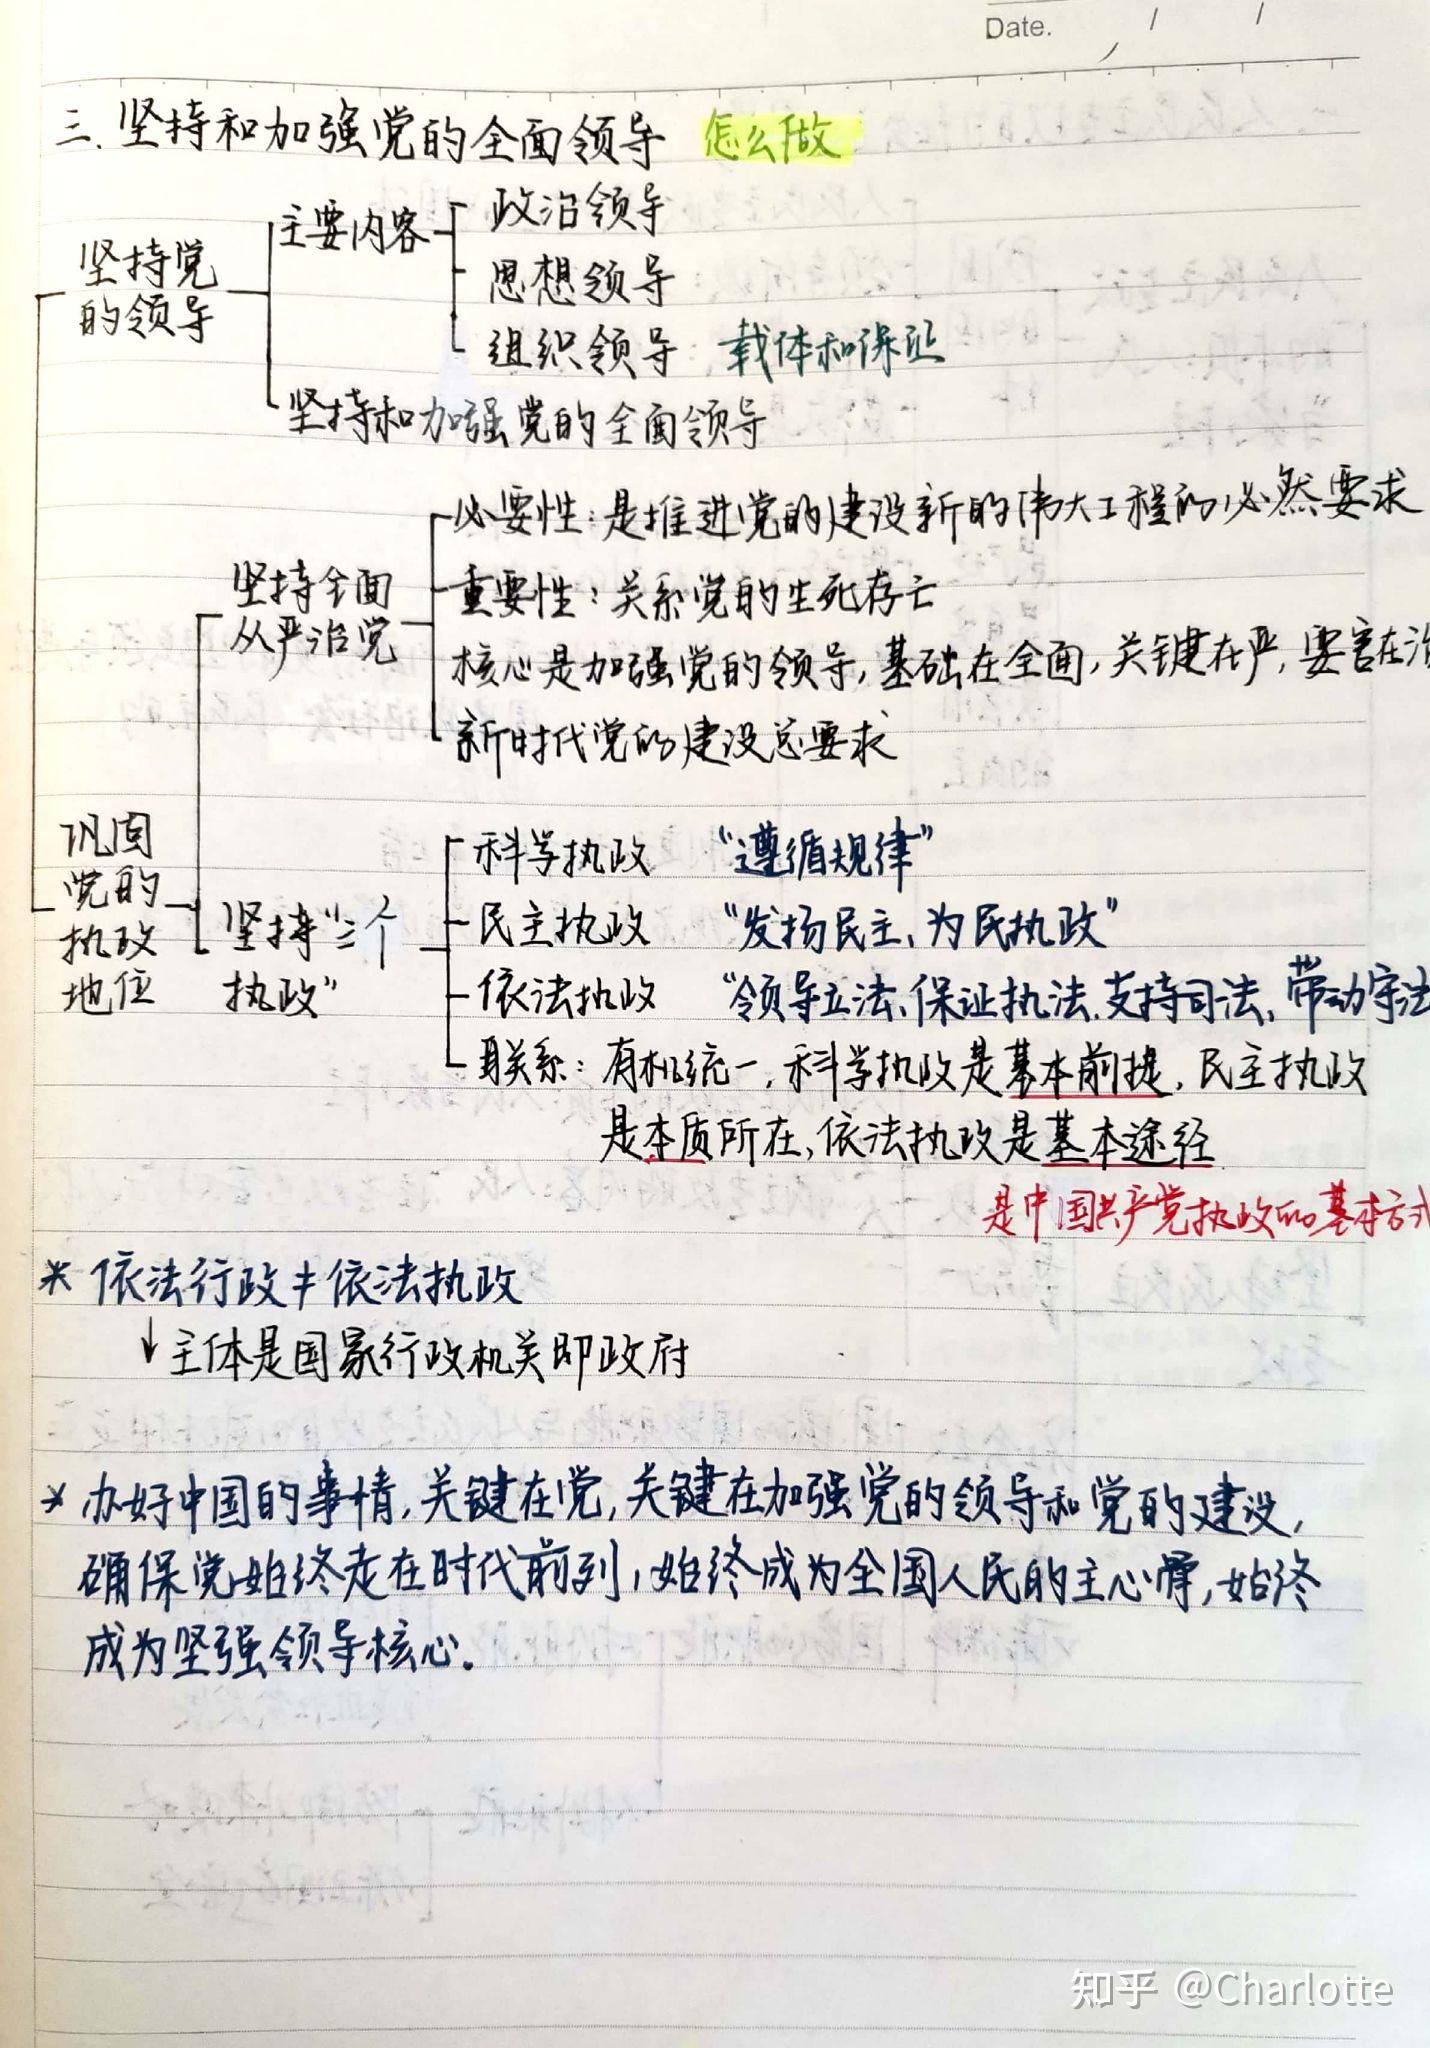 Date. / /
三. 坚持和加强党的全面领导 怎么做
坚持党
的领导
主要内容
政治领导
思想领导
组织领导: 载体和保证
坚持和加强党的全面领导
坚持全面
从严治党
必要性:是推进党的建设新的伟大工程的必然要求
重要性:关系党的生死存亡
核心是加强党的领导,基础在全面,关键在严,要害在治
新时代党的建设总要求
巩固
党的
执政
地位
坚持"三个
执政"
科学执政 "遵循规律"
民主执政 "发扬民主、为民执政"
依法执政 "领导立法、保证执法、支持司法、带动守法
联系:有机统一,科学执政是基本前提,民主执政
是本质所在,依法执政是基本途径
是中国共产党执政的基本方式
* 依法行政≠依法执政
↓主体是国家行政机关即政府
* 办好中国的事情,关键在党,关键在加强党的领导和党的建设,
确保党始终走在时代前列,始终成为全国人民的主心骨,始终
成为坚强领导核心.
知乎 @Charlotte